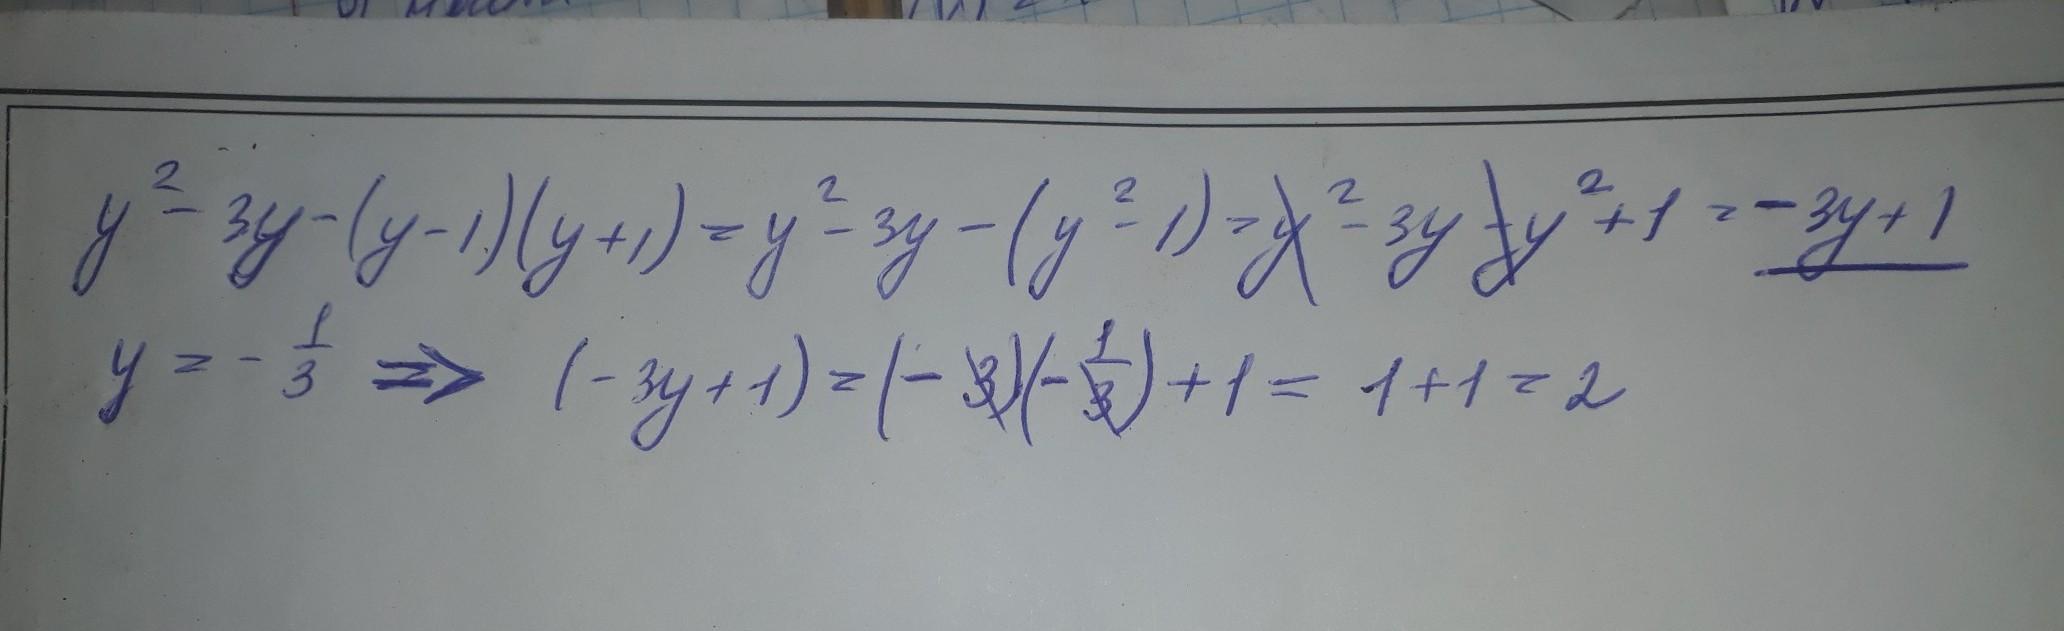 y² - 3y - (y-1)(y+1) = y² - 3y - (y² - 1) = y² - 3y - y² + 1 = -3y + 1
y = - 1/3 ⇒ (-3y+1) = (-3)(-1/3) + 1 = 1 + 1 = 2